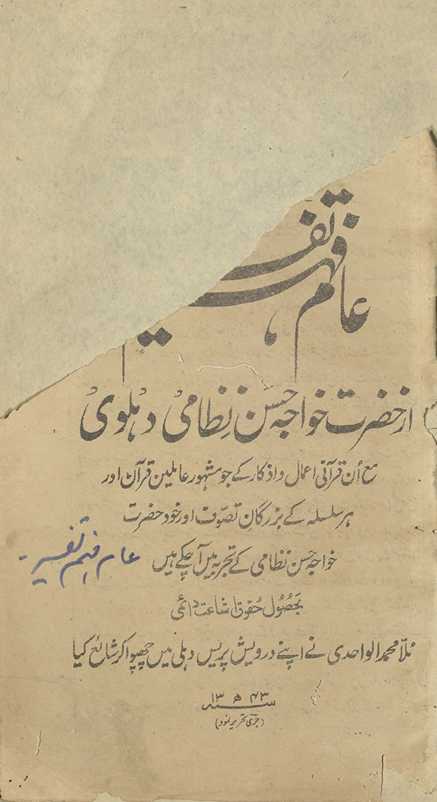 عام فہم تفسیر
از حضرت خواجہ حسن نظامی دہلوی
مع اُن قرآنی اعمال و اذکار کے جو مشہور عاملین قرآن اور
ہر سلسلہ کے بزرگان تصوف اور خود حضرت
خواجہ حسن نظامی کے تجربہ میں آ چکے ہیں
عام فہم تفسیر
بحصول حقوق اشاعت دائمی
ملا محمد الواحدی نے اپنے درویش پریس دہلی میں چھپوا کر شائع کیا
سنہ ۱۳۴۳ھ